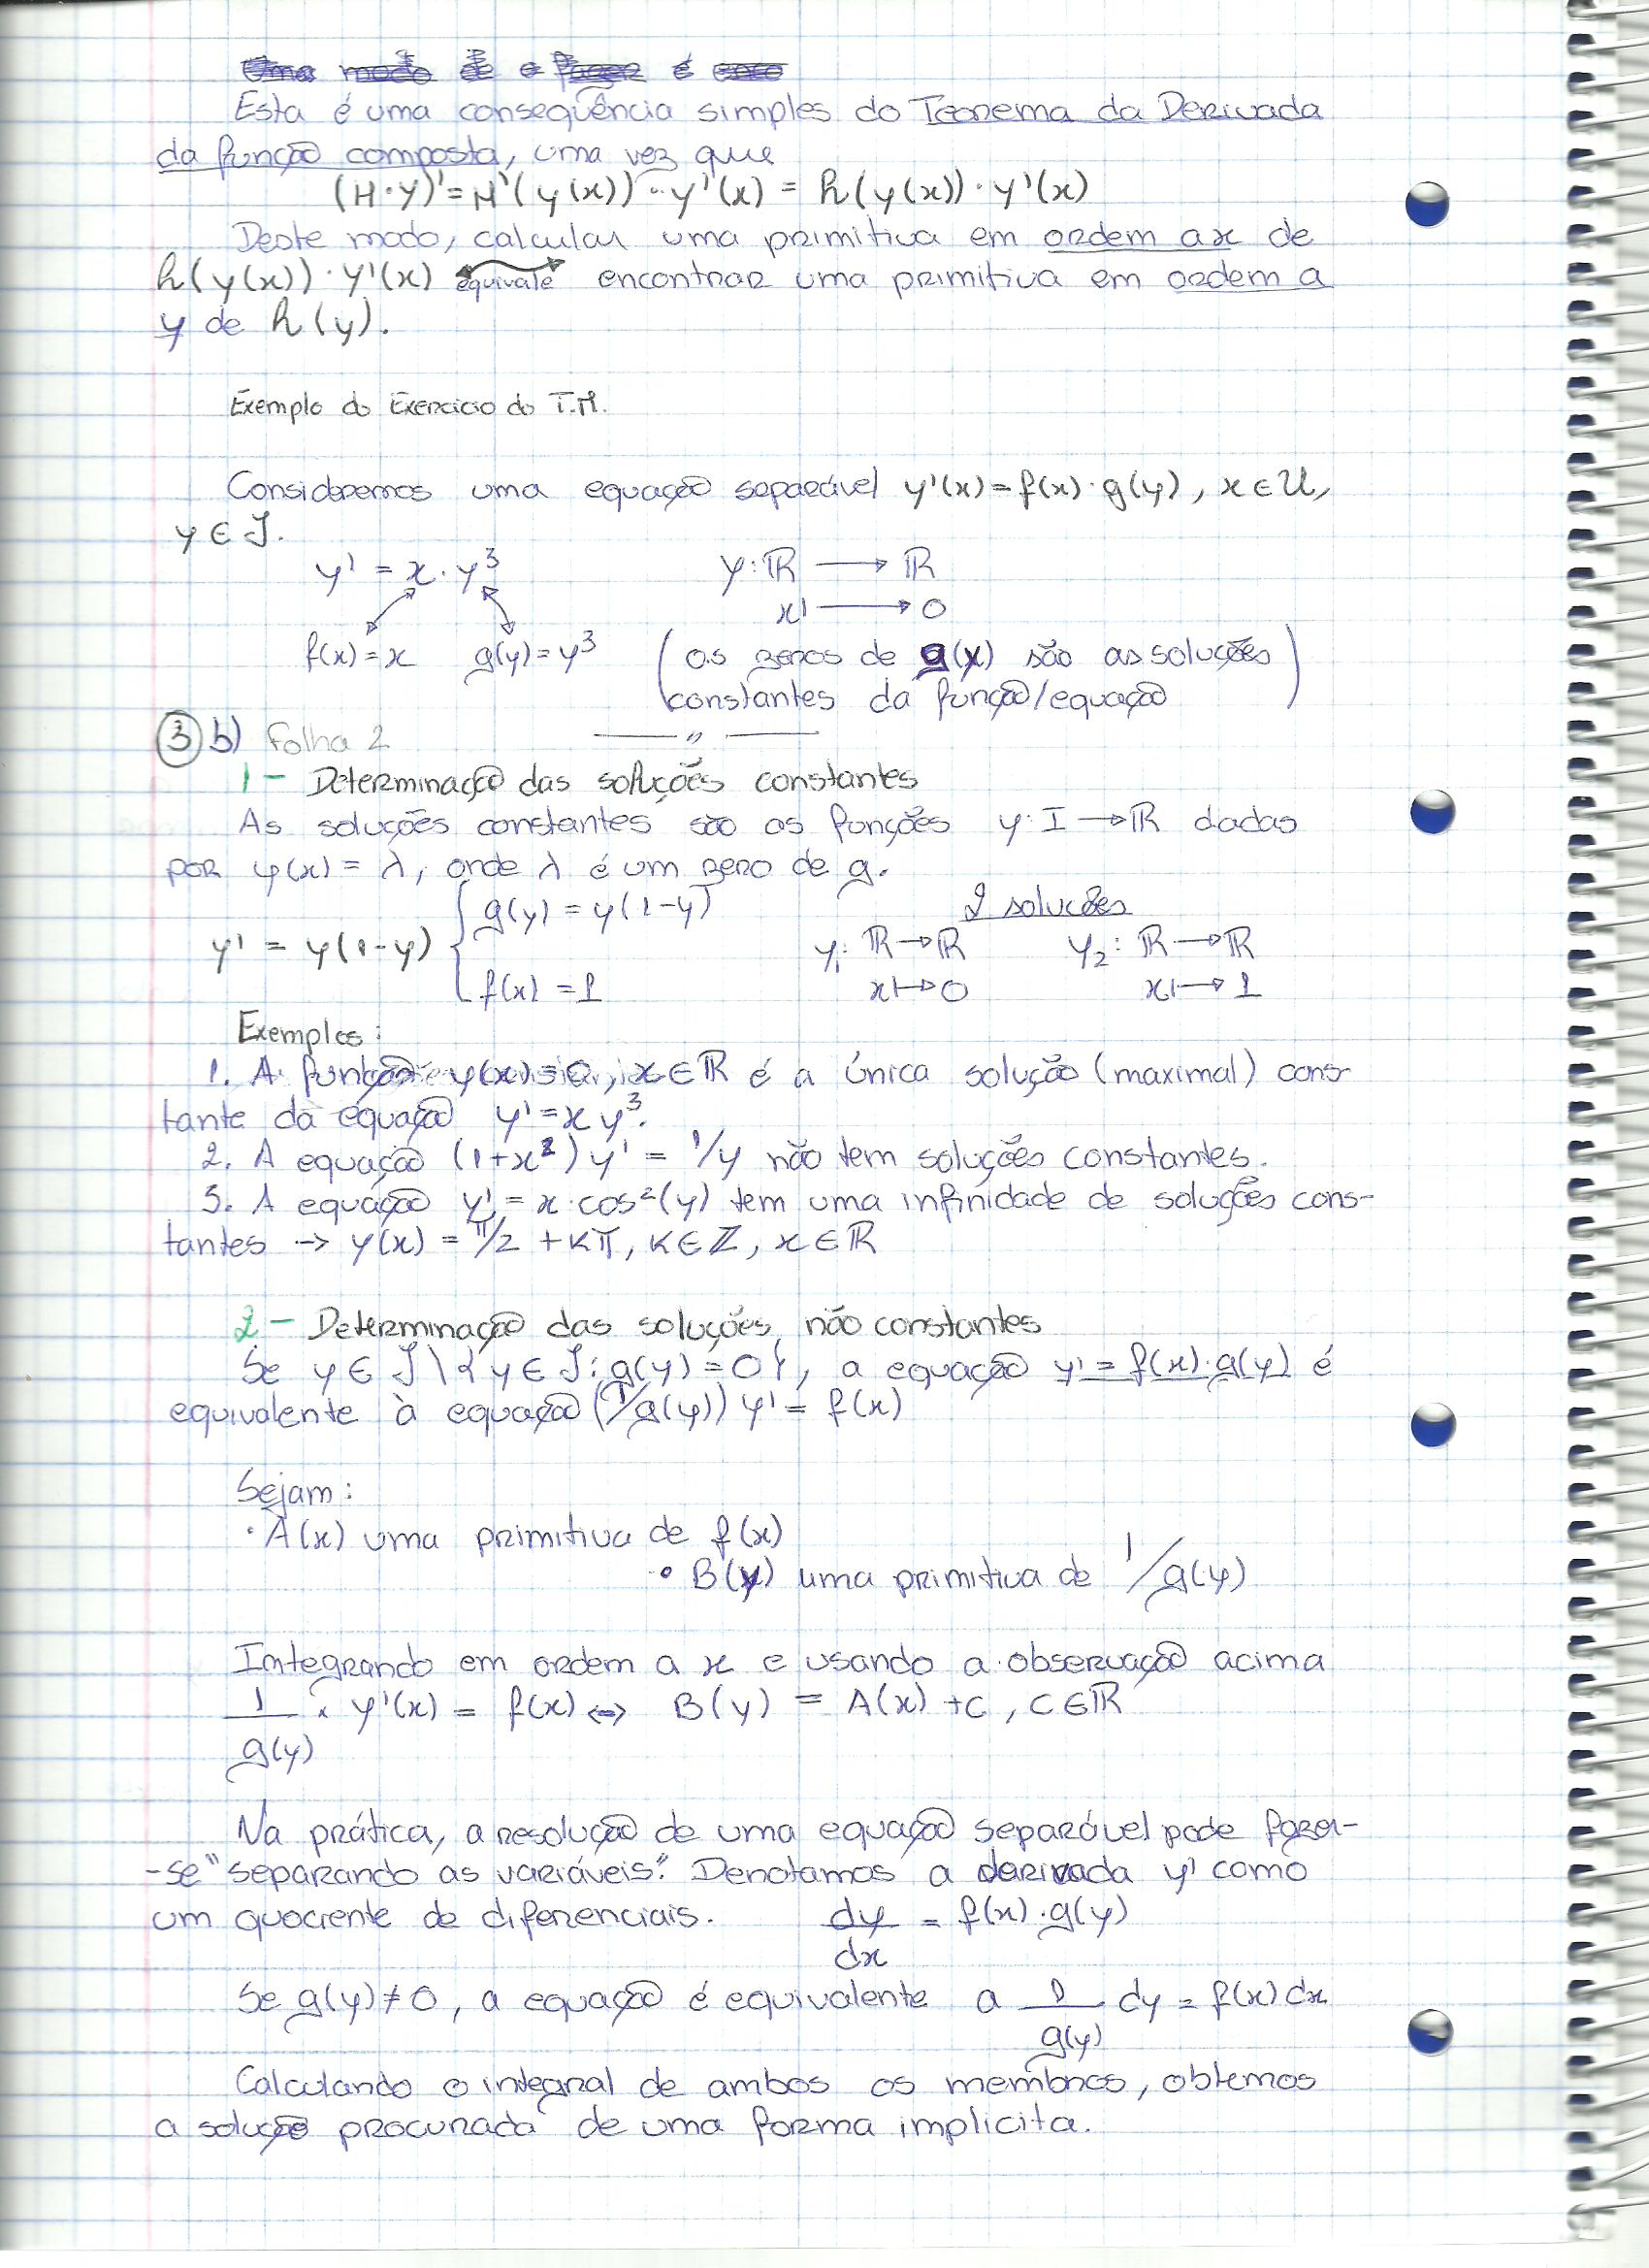 Esta é uma conseqüência simples do Teorema da Derivada
da função composta, uma vez que
(H·y)' = H'(y(x)) · y'(x) = h(y(x)) · y'(x)
Deste modo, calcular uma primitiva em ordem a x de
h(y(x)) · y'(x) equivale encontrar uma primitiva em ordem a
y de h(y).
Exemplo do Exercicio do T.M.
Consideremos uma equação separável y'(x) = f(x) · g(y), x ∈ U,
y ∈ J.
y' = x · y³ y: ℝ ⟶ ℝ
x ⟼ 0
f(x) = x g(y) = y³ (os zeros de g(y) são as soluções
constantes da função/equação)
③ b) Folha 2 —— " ——
1 - Determinação das soluções constantes
As soluções constantes são as funções y: I → ℝ dadas
por φ(x) = λ, onde λ é um zero de g.
y' = y(1-y) { g(y) = y(1-y) 2 soluções
y₁: ℝ → ℝ y₂: ℝ → ℝ
f(x) = 1 x ↦ 0 x ↦ 1
Exemplos:
1. A função y(x) = 0, x ∈ ℝ é a única solução (maximal) cons-
tante da equação y' = x y³.
2. A equação (1+x²) y' = 1/y não tem soluções constantes.
3. A equação y' = x · cos²(y) tem uma infinidade de soluções cons-
tantes → y(x) = π/2 + kπ, k ∈ ℤ, x ∈ ℝ
2 - Determinação das soluções não constantes
Se y ∈ J \ {y ∈ J : g(y) = 0}, a equação y' = f(x) · g(y) é
equivalente à equação (1/g(y)) y' = f(x)
Sejam:
· A(x) uma primitiva de f(x)
• B(y) uma primitiva de 1/g(y)
Integrando em ordem a x e usando a observação acima
1/g(y) × y'(x) = f(x) ⇔ B(y) = A(x) + C, C ∈ ℝ
Na prática, a resolução de uma equação separável pode fazer-
-se "separando as variáveis". Denotamos a derivada y' como
um quociente de diferenciais. dy/dx = f(x) · g(y)
Se g(y) ≠ 0, a equação é equivalente a 1/g(y) dy = f(x) dx
Calculando o integral de ambos os membros, obtemos
a solução procurada de uma forma implicita.